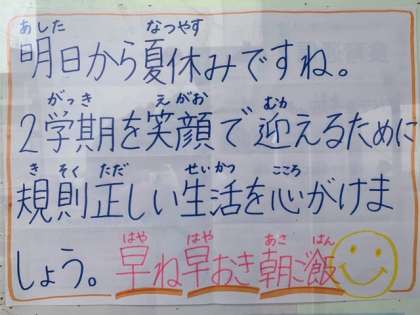 あした なつやす
明日から夏休みですね。
がっき えがお むか
2学期を笑顔で迎えるために
きそくただ せいかつ こころ
規則正しい生活を心がけま
はや はや あさ はん
しょう。早ね早おき朝ご飯